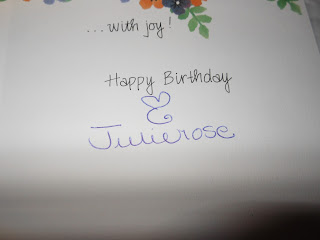 ...with joy!
Happy Birthday
Julierose